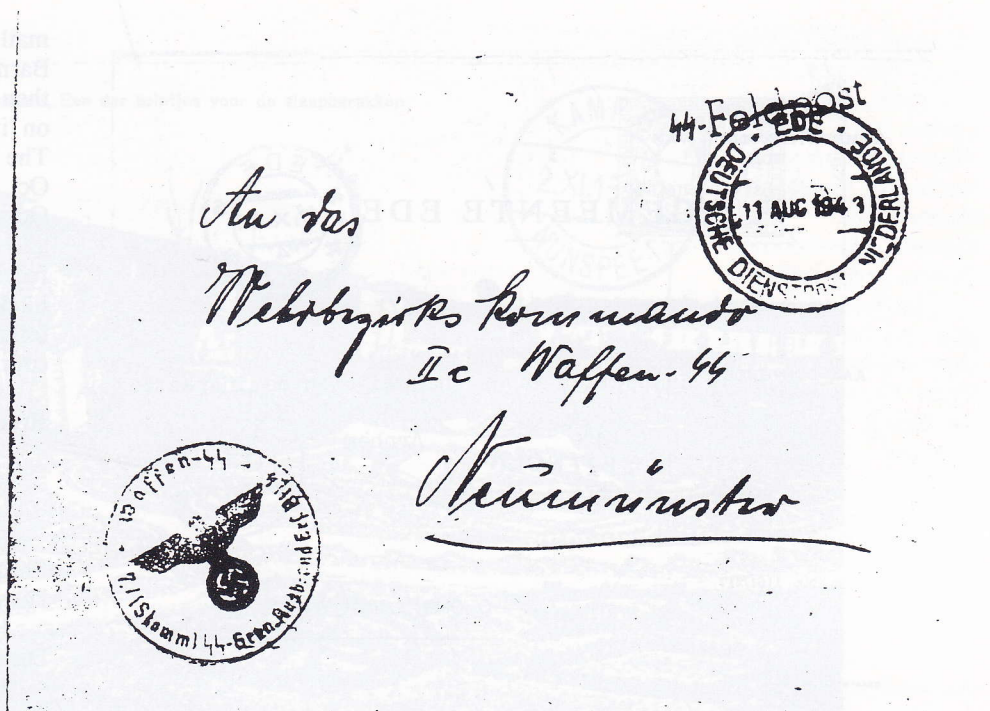 SS-Feldpost
EDE
DEUTSCHE DIENSTPOST NIEDERLANDE
11 AUG 1943
An das
Wehrbezirks Kommando
II c Waffen-SS
Neumünster
Waffen-SS
SS-Gren. Ausb. und Ers.